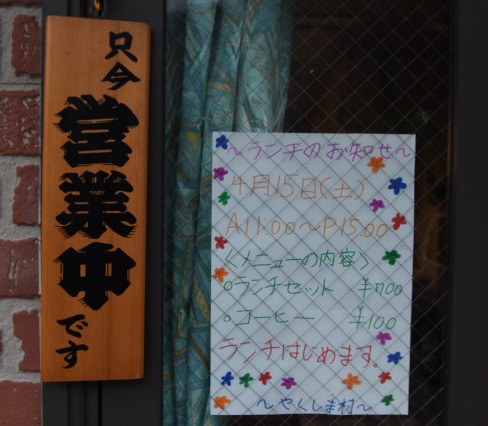 只今
営業中
です
～ランチのお知せ～
4月15日(土)
A11:00～P15:00
〈メニューの内容〉
○ランチセット ¥700
○コーヒー ¥100
ランチはじめます。
～やくしま村～